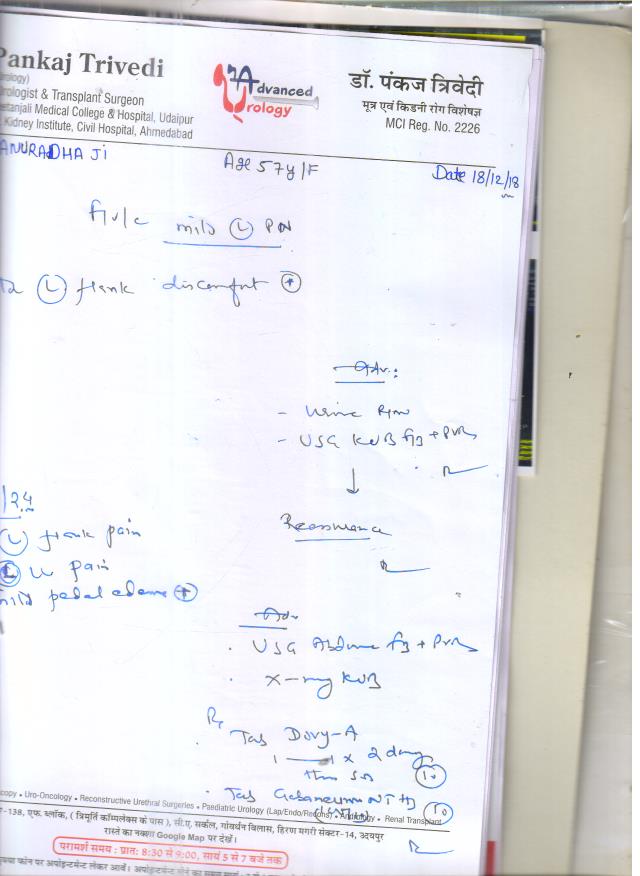 Pankaj Trivedi
rology)
rologist & Transplant Surgeon
etanjali Medical College & Hospital, Udaipur
Kidney Institute, Civil Hospital, Ahmedabad
Advanced
Urology
डॉ. पंकज त्रिवेदी
मूत्र एवं किडनी रोग विशेषज्ञ
MCI Reg. No. 2226
ANURADHA JI
Age 57y/F
Date 18/12/18
mild (L) PN
(L) flank discomfort (+)
Adv:
- Urine R/M
- USG KUB + PVR
Reassurance
(L) flank pain
(L) LL pain
mild pedal edema (+)
Adv
. USG Abdomen + PVR
. X-ray KUB
Rx
Tab Dovy-A
1 — 1 x 2 days
then SOS
. Tab Gabaneuron NT
copy • Uro-Oncology • Reconstructive Urethral Surgeries • Paediatric Urology (Lap/Endo/Recons) • Andrology • Renal Transplant
-138, एफ. ब्लॉक, ( त्रिमूर्ति कॉम्पलेक्स के पास ), सी.ए. सर्कल, गोवर्धन विलास, हिरण मगरी सेक्टर-14, उदयपुर
रास्ते का नक्शा Google Map पर देखें।
परामर्श समय : प्रातः 8:30 से 9:00, सायं 5 से 7 बजे तक